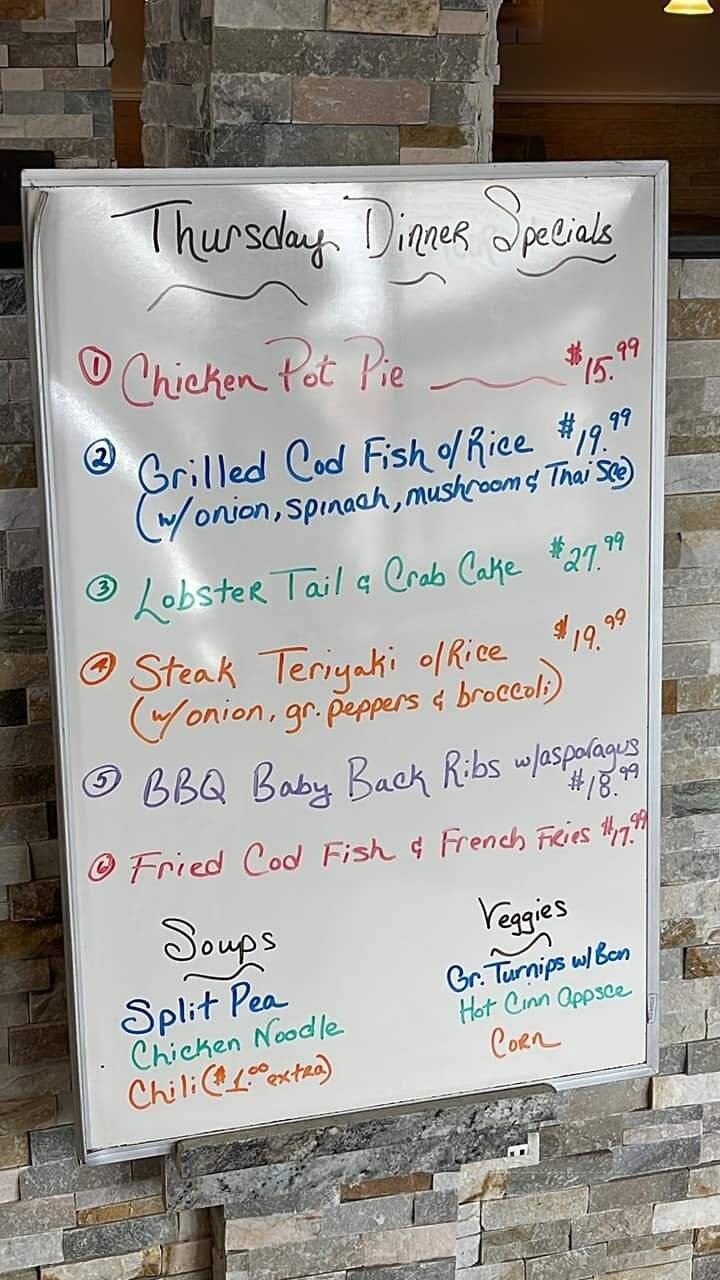 Thursday Dinner Specials
① Chicken Pot Pie $15.99
② Grilled Cod Fish o/Rice $19.99
(w/onion, spinach, mushroom & Thai Sce)
③ Lobster Tail & Crab Cake $27.99
④ Steak Teriyaki o/Rice $19.99
(w/onion, gr. peppers & broccoli)
⑤ BBQ Baby Back Ribs w/asparagus
$18.99
⑥ Fried Cod Fish & French Fries $17.99
Soups
Split Pea
Chicken Noodle
Chili ($1.00 extra)
Veggies
Gr. Turnips w/ Bcn
Hot Cinn Appsce
Corn